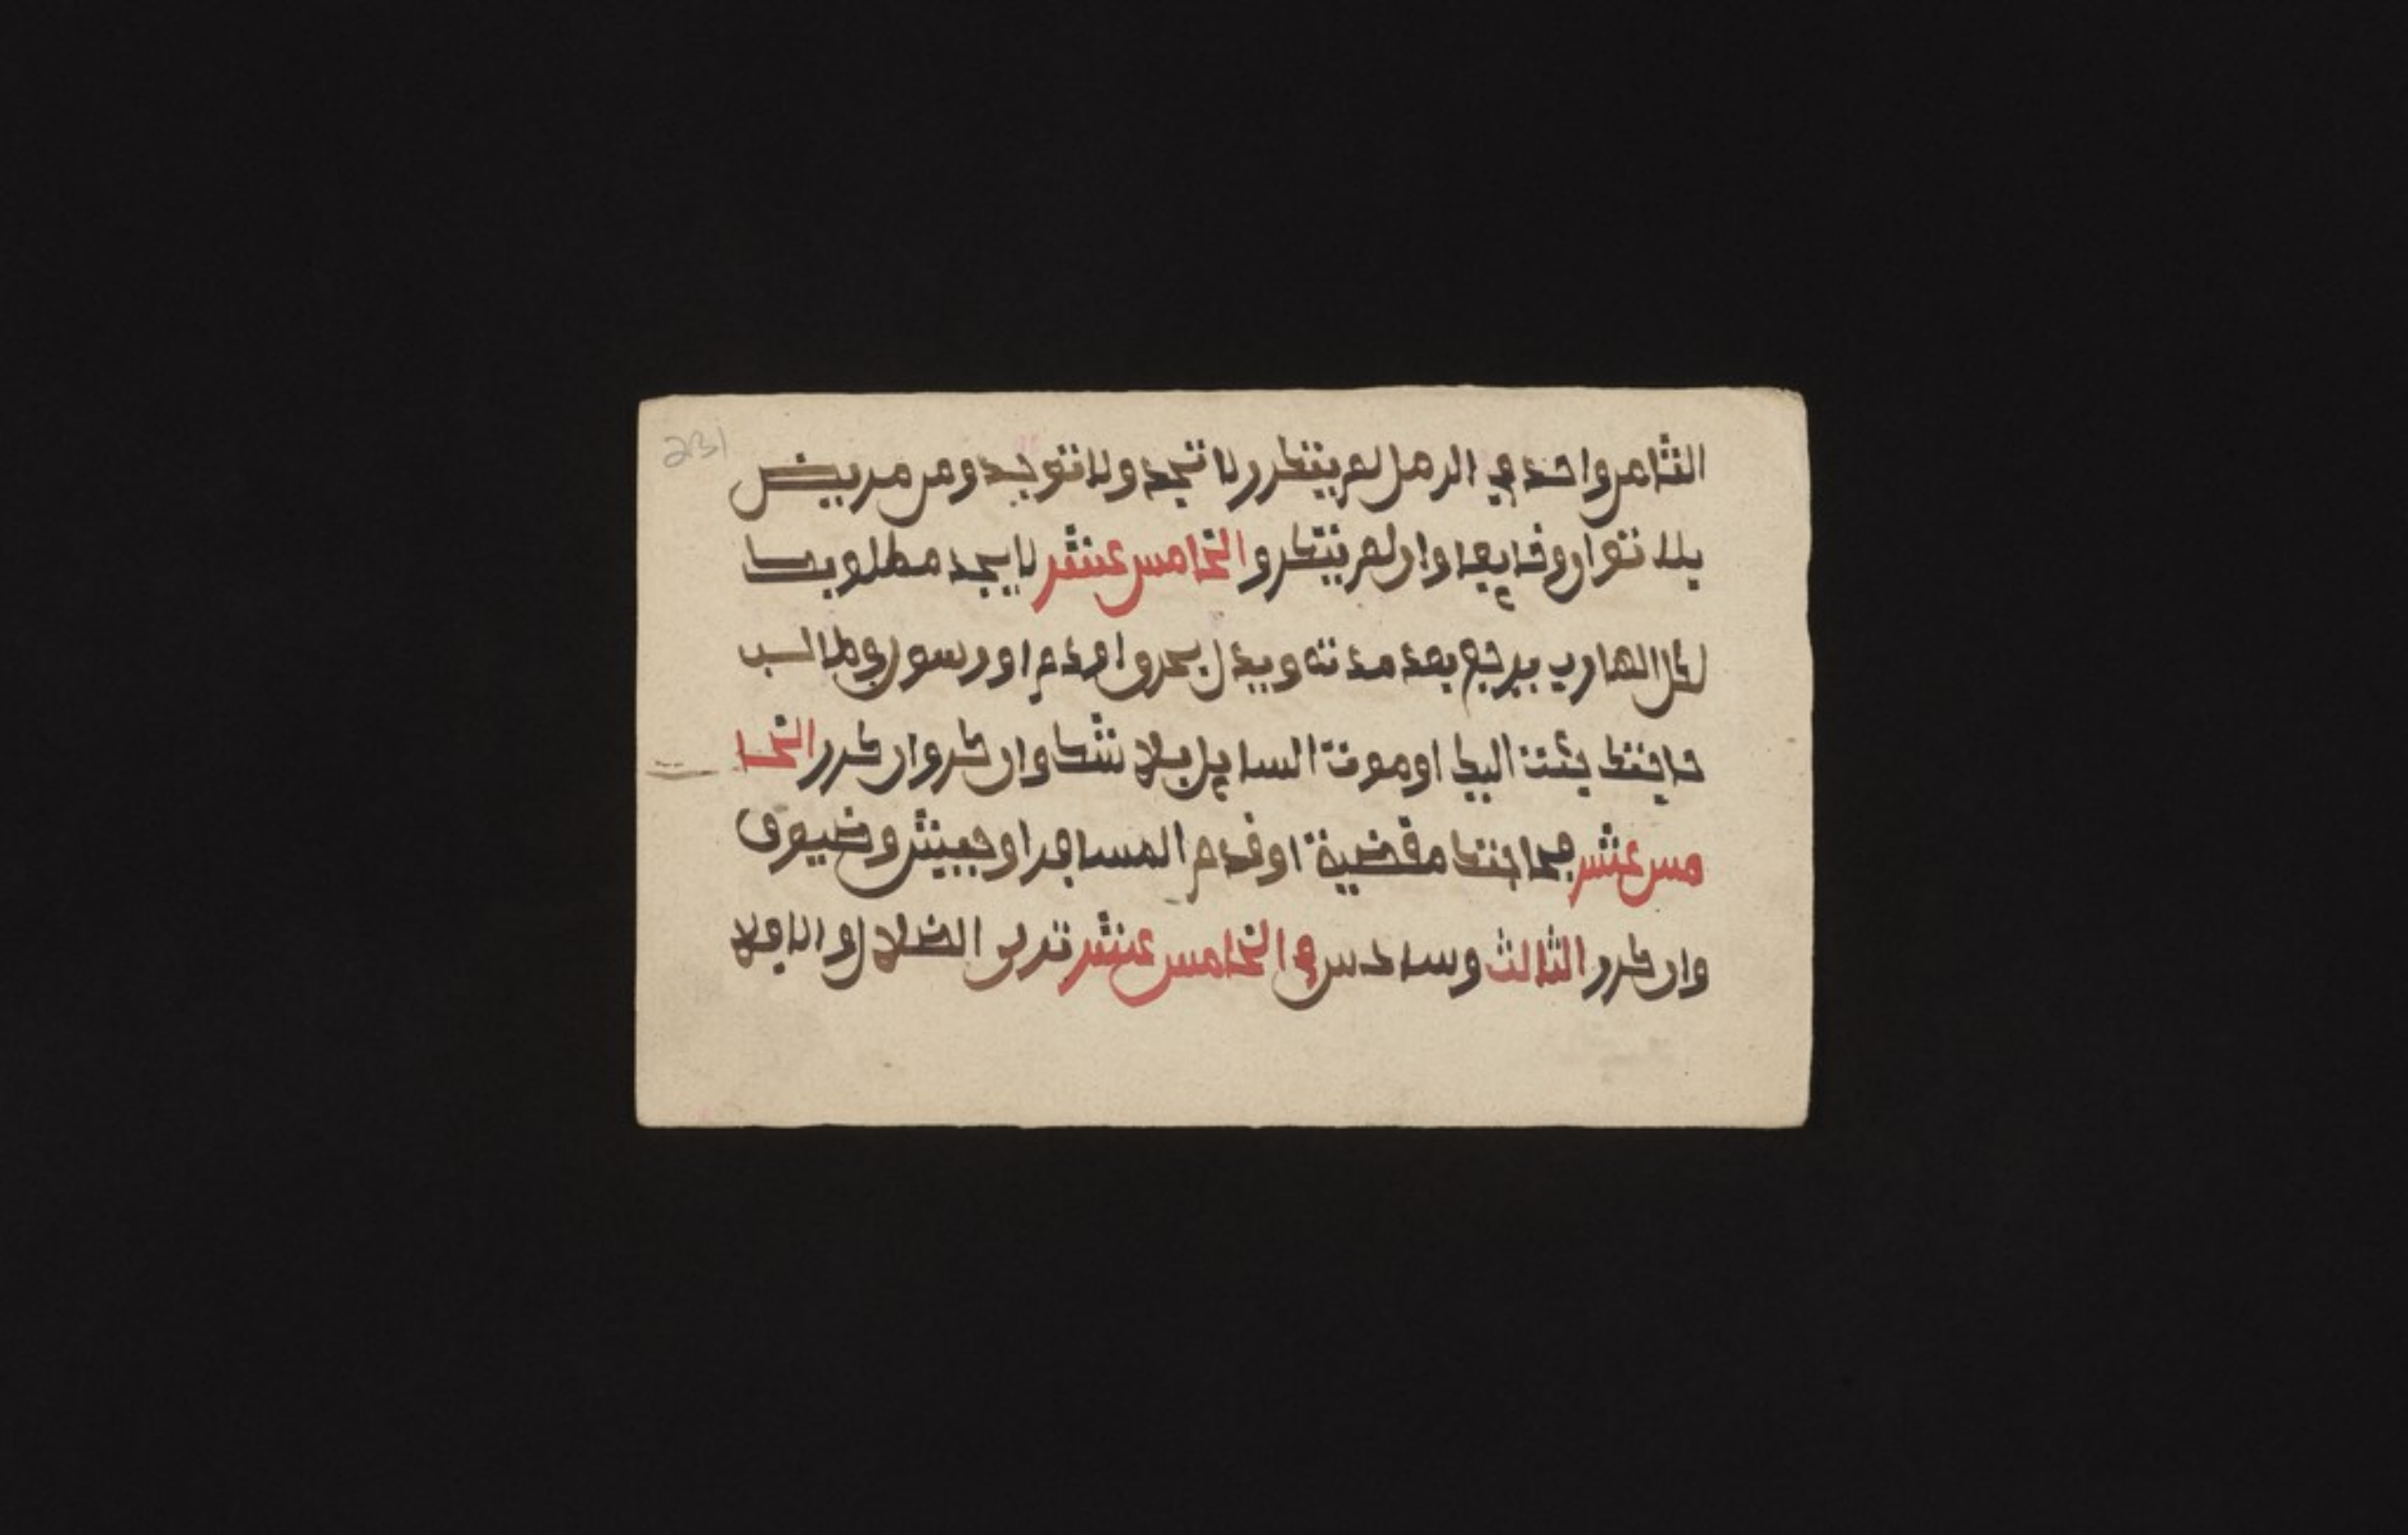 231
الثامن واحد في الرمل لم يتكرر لا تجد ولا توجد ومن مريض
بلا توان وقايعا وان لم يتكر و الخامس عشر لا يجد مطلوبك
لكل الهارب يرجع بعد مدته ويدل بحرو او رسول وطالب
حاجتك جئت اليك او موت السايل بلا شك وان كر وان كرر الخا
مس عشر فحاجتك مقضية او قدم المسافر او جييش وضيوف
وان كرر الثالث وسادس في الخامس عشر تدل الضلال و الا فلا